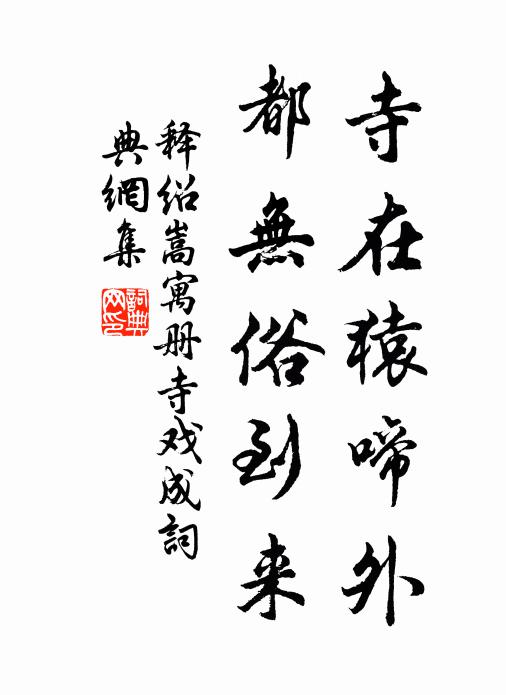 寺在猿啼外
都無俗到来
释绍嵩寓册寺戏成詞
典網集
詞典網印